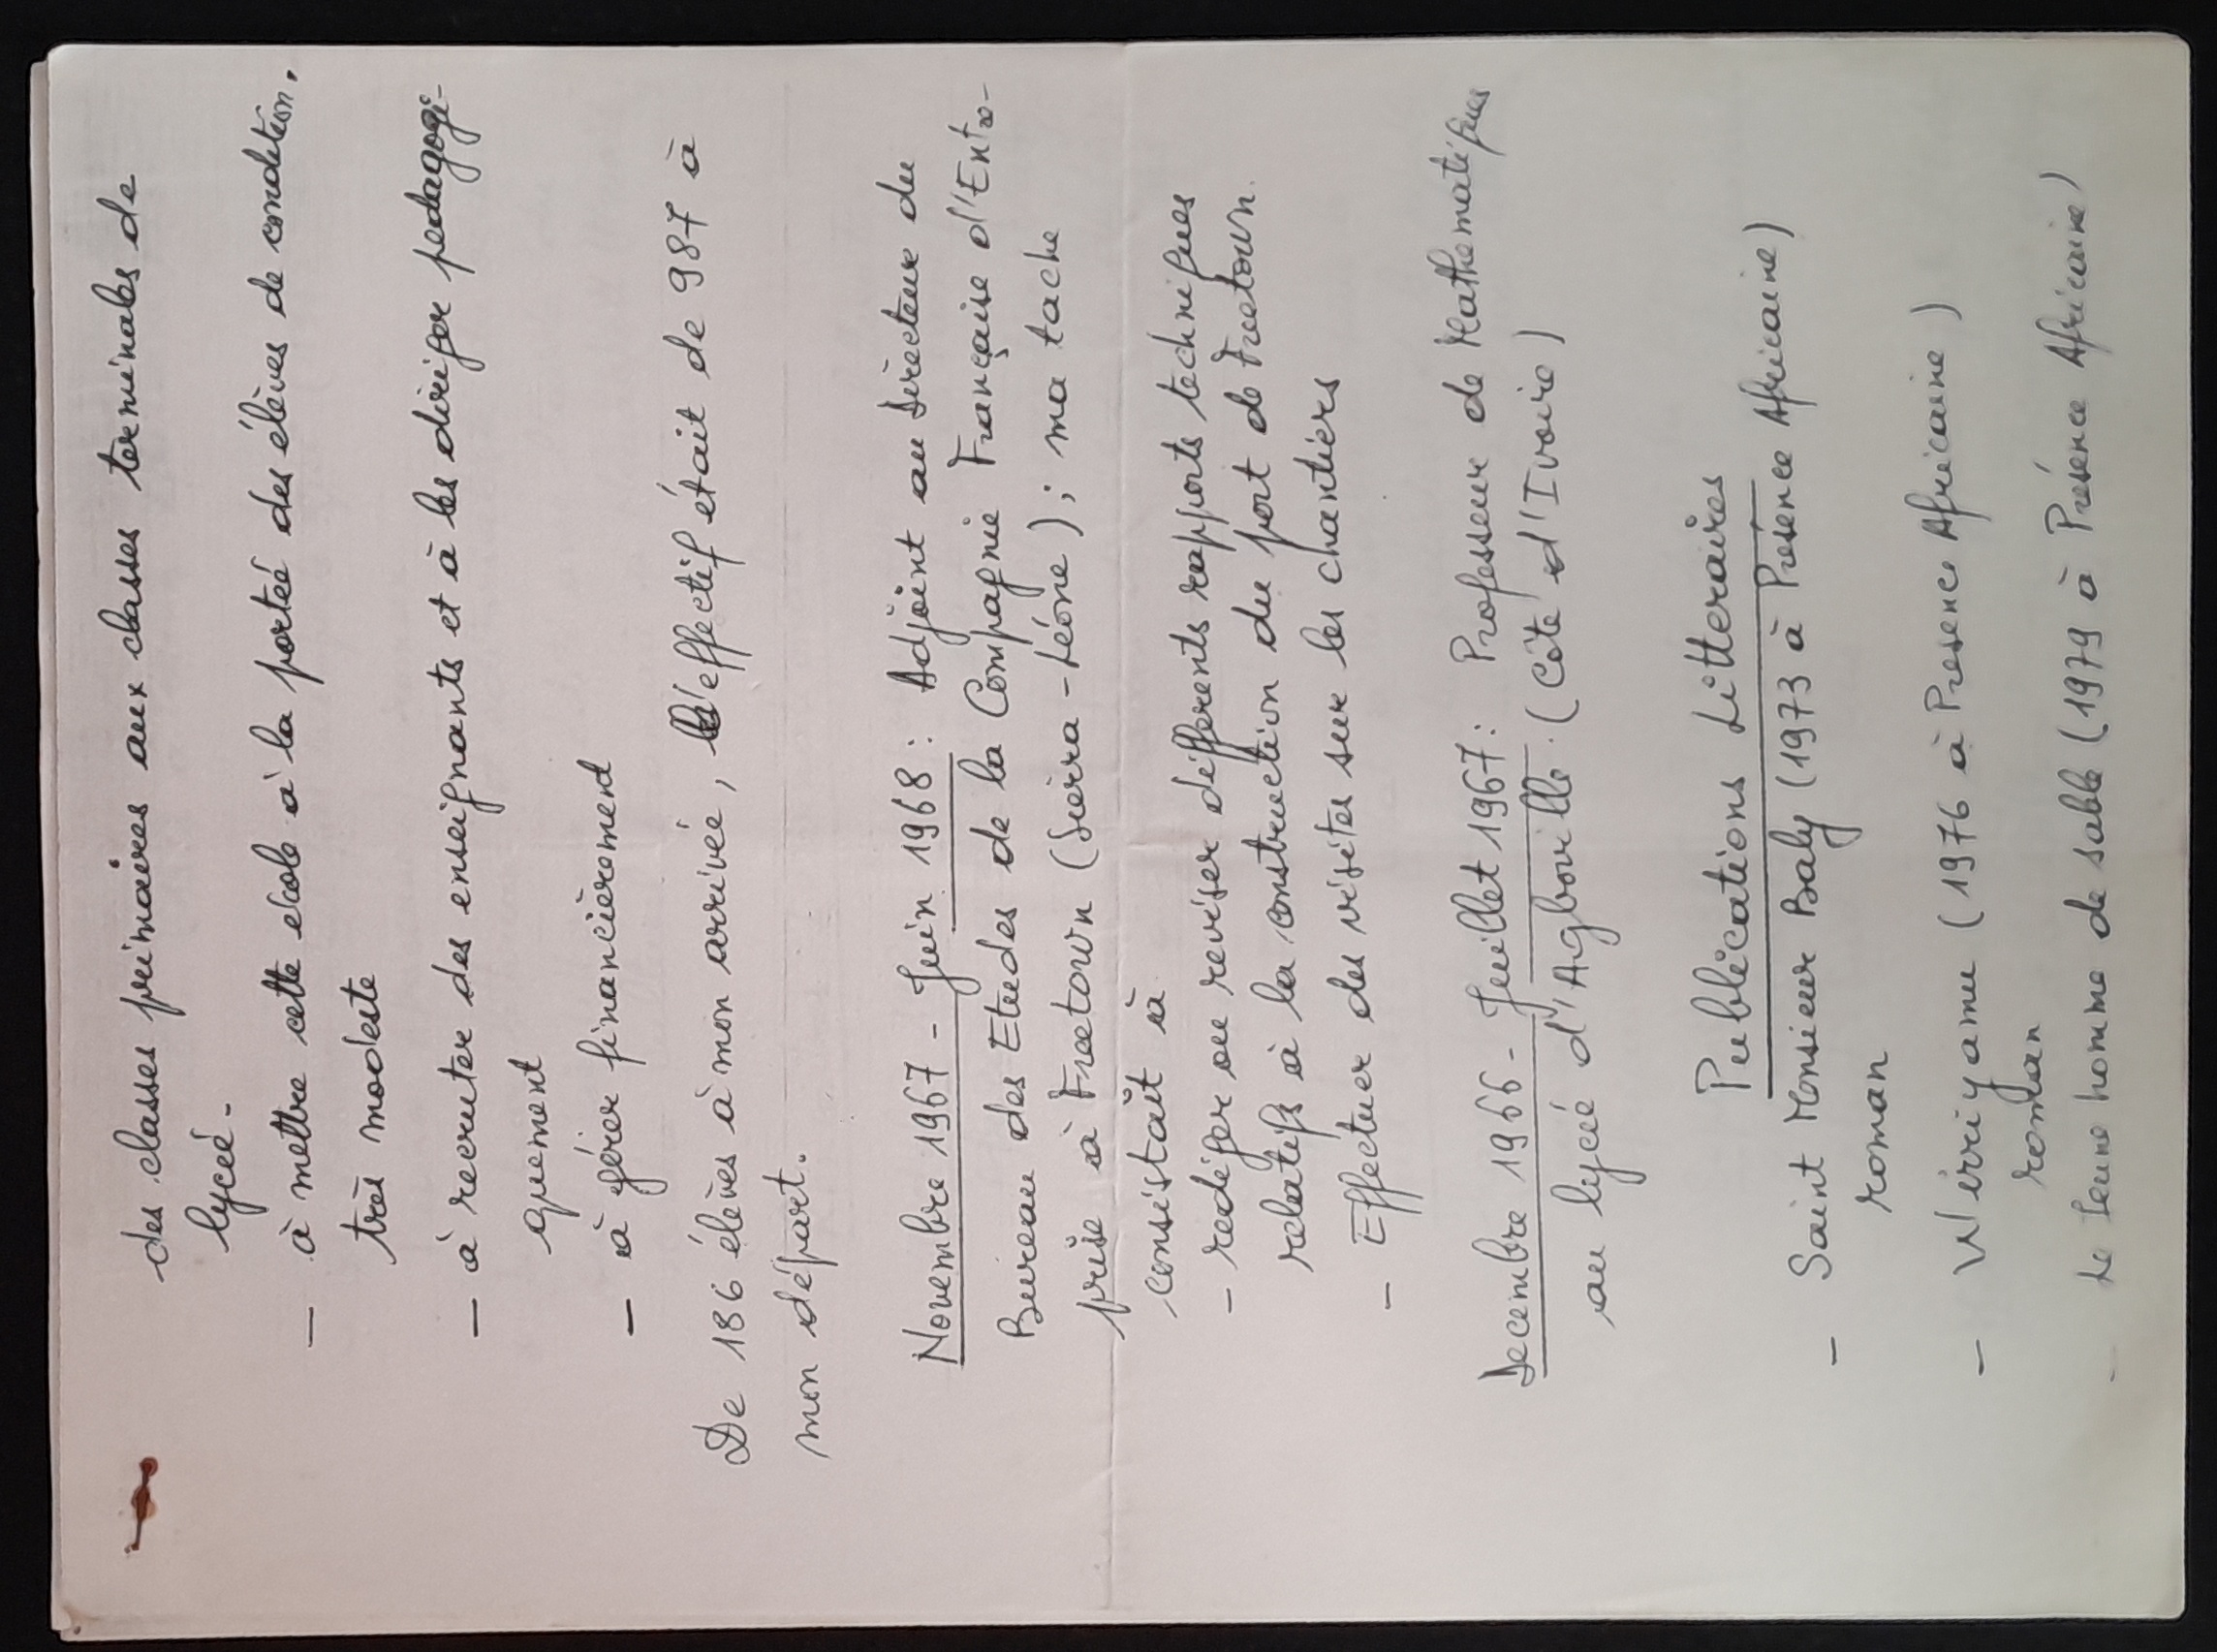 des classes primaires aux classes terminales de
lycée.
— à mettre cette école à la portée des élèves de condition.
très modeste
— à recruter des enseignants et à les diriger pedagogi-
quement
— à gérer financièrement
De 186 élèves à mon arrivée, l'effectif était de 987 à
mon départ.
Novembre 1967 - Juin 1968 : Adjoint au Directeur du
Bureau des Etudes de la Compagnie Française d'Entre-
prise à Freetown (Sierra-Léone) ; ma tache
consistait à
- rediger ou reviser différents rapports techniques
relatifs à la construction du port de Freetown.
- Effectuer des visites sur les chantiers
Decembre 1966 - Juillet 1967 : Professeur de Mathematiques
au lycée d'Agboville. (Côte d'Ivoire)
Publications Litteraires
- Saint Monsieur Baly (1973 à Présence Africaine)
roman
- Wirriyamu (1976 à Presence Africaine)
roman
- Le Jeune homme de sable (1979 à Présence Africaine)